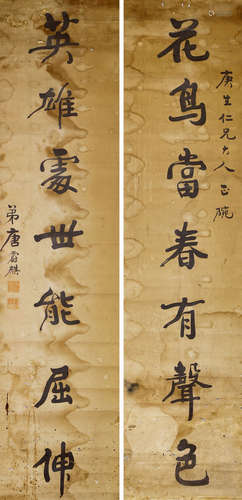 庚生仁兄大人正腕
花鳥當春有聲色
英雄處世能屈伸
弟唐爵麒